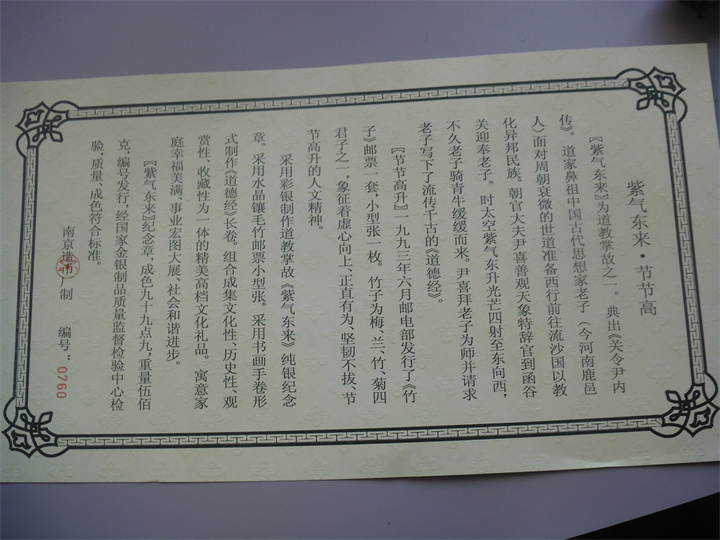 紫气东来·节节高
『紫气东来』为道教掌故之一。典出《关令尹内
传》。道家鼻祖中国古代思想家老子（今河南鹿邑
人）面对周朝衰微的世道准备西行前往流沙国以教
化异邦民族。朝官大夫尹喜善观天象特辞官到函谷
关迎奉老子。时太空紫气东升光芒四射至东向西，
不久老子骑青牛缓缓而来。尹喜拜老子为师并请求
老子写下了流传千古的《道德经》。
『节节高升』一九九三年六月邮电部发行了《竹
子》邮票一套，小型张一枚。竹子为梅、兰、竹、菊四
君子之一，象征着虚心向上、正直有为、坚韧不拔、节
节高升的人文精神。
采用彩银制作道教掌故《紫气东来》纯银纪念
章。采用水晶镶毛竹邮票小型张。采用书画手卷形
式制作《道德经》长卷。组合成集文化性、历史性、观
赏性、收藏性为一体的精美高档文化礼品。寓意家
庭幸福美满、事业宏图大展、社会和谐进步。
『紫气东来』纪念章，成色九十九点九，重量伍佰
克，编号发行，经国家金银制品质量监督检验中心检
验，质量、成色符合标准。
南京 厂制 编号：0760